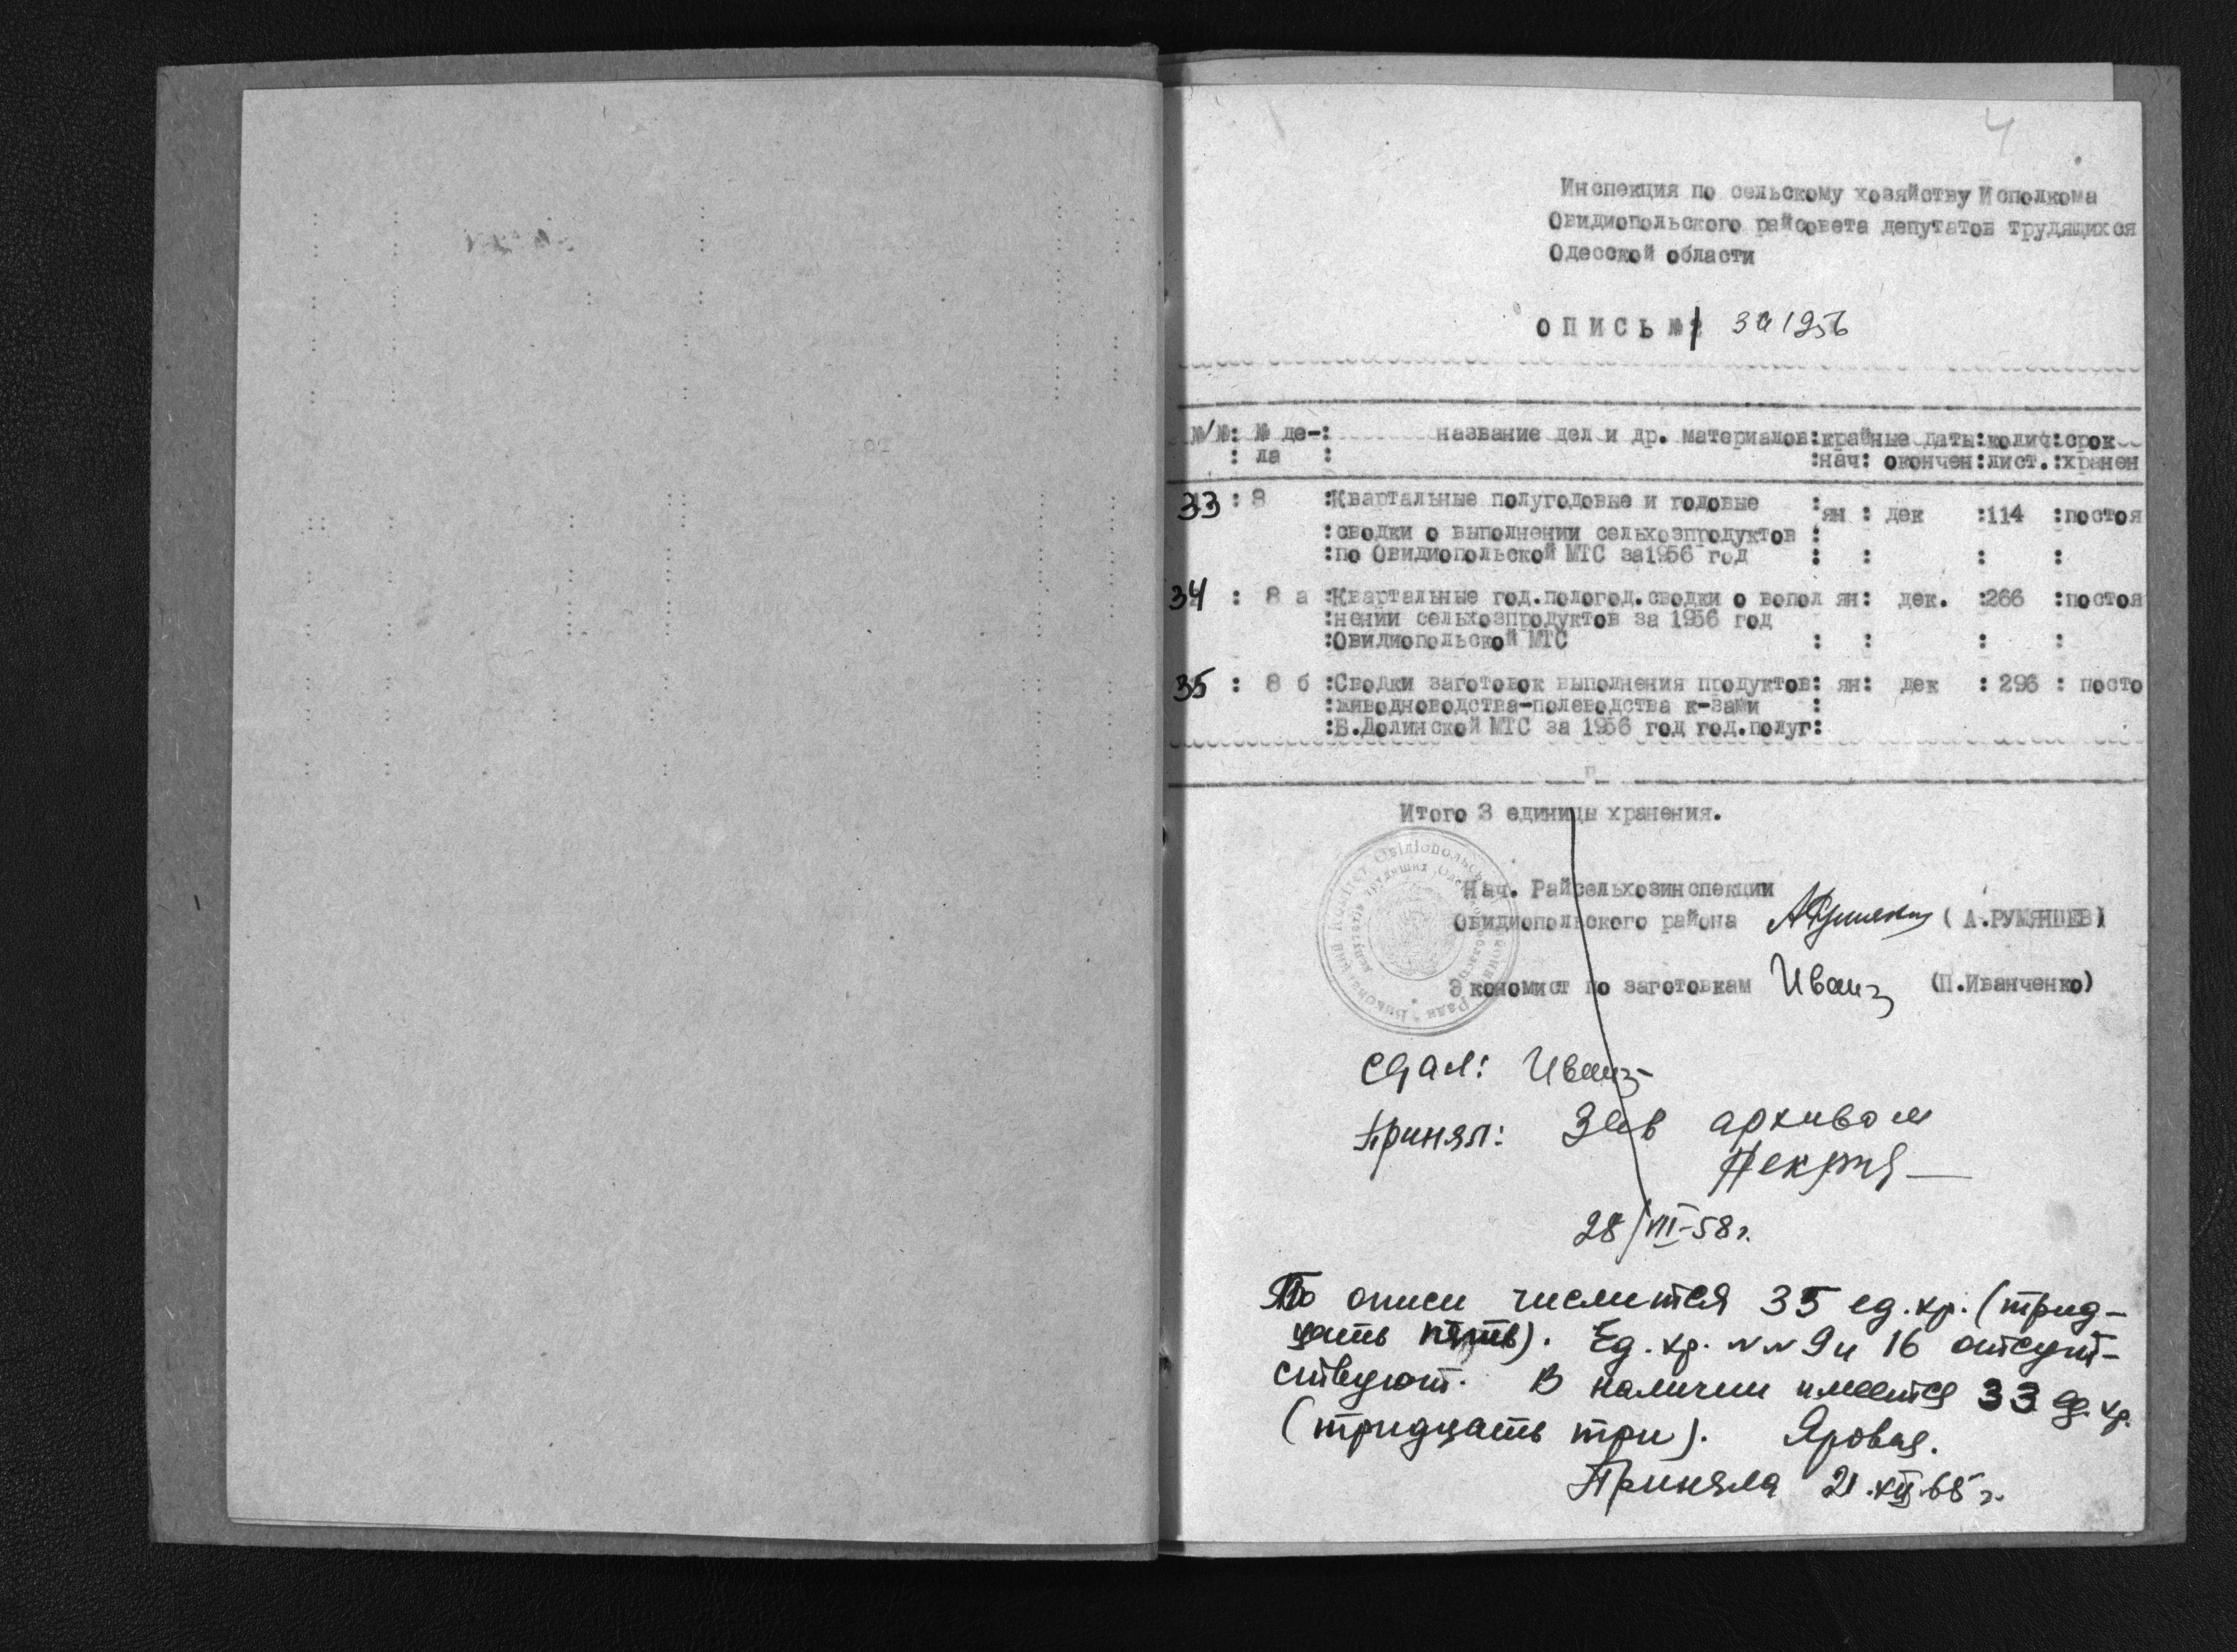 4
Инспекция по сельскому хозяйству Исполкома
Овидиопольского райсовета депутатов трудящихся
Одесской области
ОПИСЬ № 1 за 1956
№/№: № де-: название дел и др. материалов:крайные даты:колич:срок
: ла : :нач: окончен:лист.:хранен
33 : 8 :Квартальные полугодовые и годовые :ян : дек :114 :постоя
:сводки о выполнении сельхозпродуктов :
:по Овидиопольской МТС за1956 год : : : :
34 : 8 а :Квартальные год.пологод.сводки о вопол ян: дек. :266 :постоя
:нении сельхозпродуктов за 1956 год
:Овидиопольской МТС : : : :
35 : 8 б :Сводки заготовок выполнения продуктов: ян: дек : 296 : посто
:живодноводства-полеводства к-зами :
:Б.Долинской МТС за 1956 год год.полуг:
Итого 3 единицы хранения.
Нач. Райсельхозинспекции
Овидиопольского района ( А.РУМЯНЦЕВ)
Экономист по заготовкам Иванч (П.Иванченко)
Сдал: Иванч
Принял: Зав архивом
28/VIII-58 г.
По описи числится 35 ед.хр. (трид-
цать пять). Ед.хр. №№ 9 и 16 отсут-
ствуют. В наличии имеется 33 ед.хр.
(тридцать три). Яровая.
Приняла 21.XII.65 г.